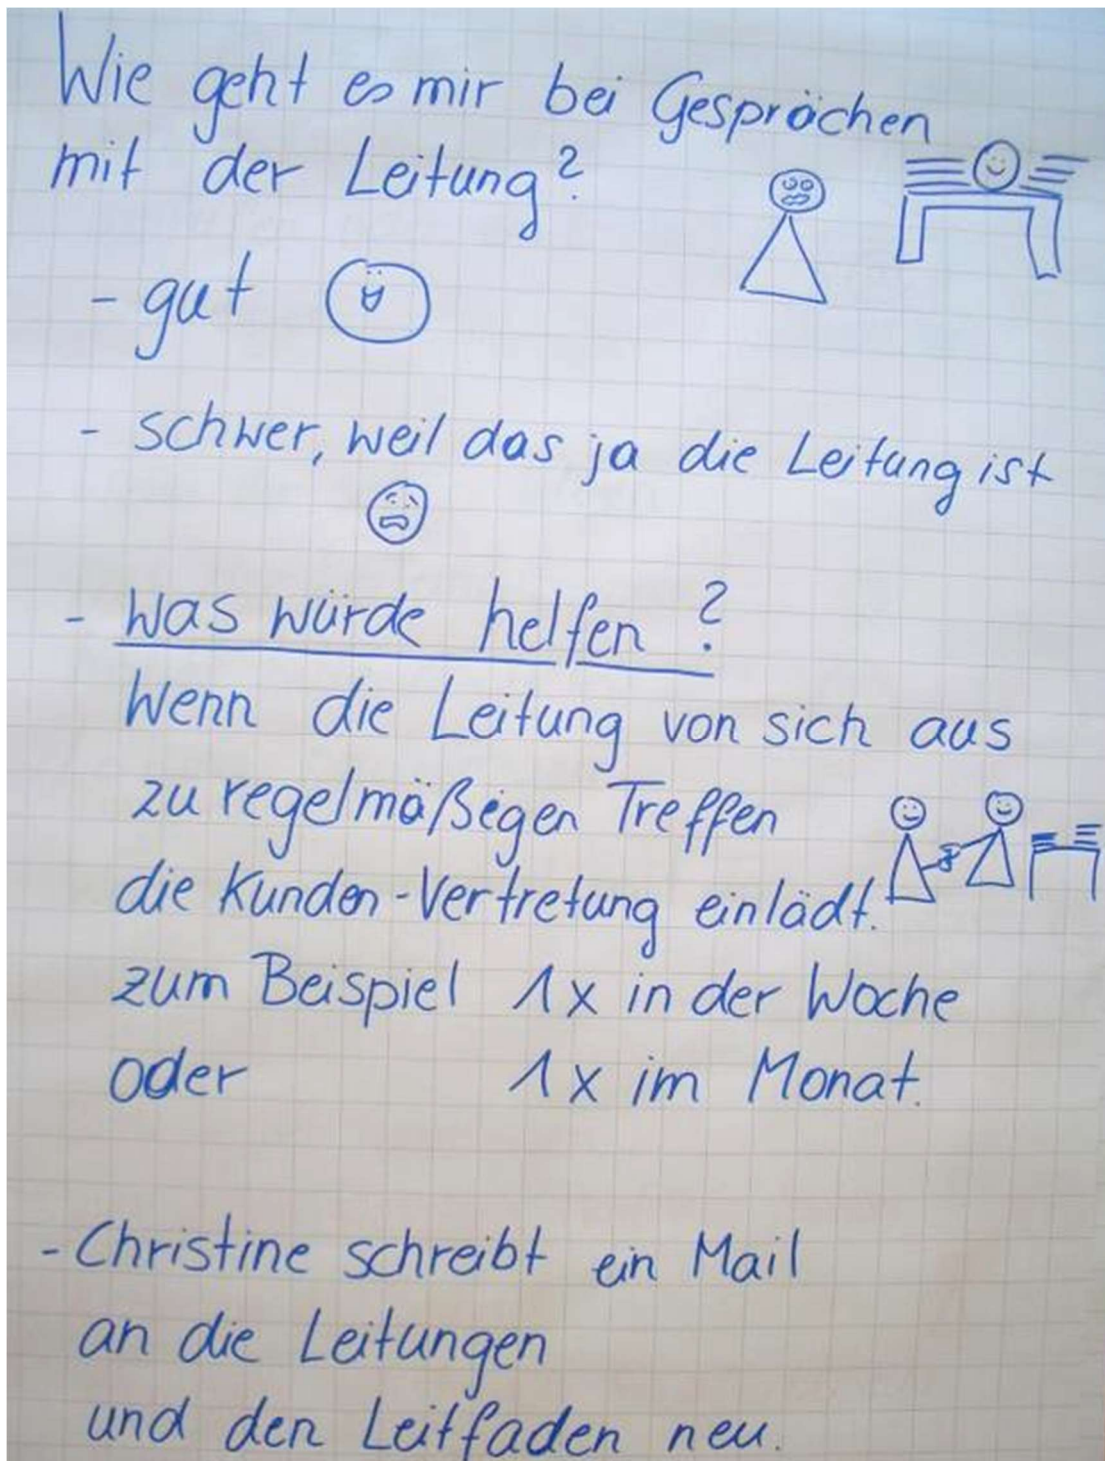 Wie geht es mir bei Gesprächen
mit der Leitung?
- gut
- schwer, weil das ja die Leitung ist
- was würde helfen?
Wenn die Leitung von sich aus
zu regelmäßigen Treffen
die Kunden-Vertretung einlädt.
zum Beispiel 1x in der Woche
oder 1x im Monat.
- Christine schreibt ein Mail
an die Leitungen
und den Leitfaden neu.